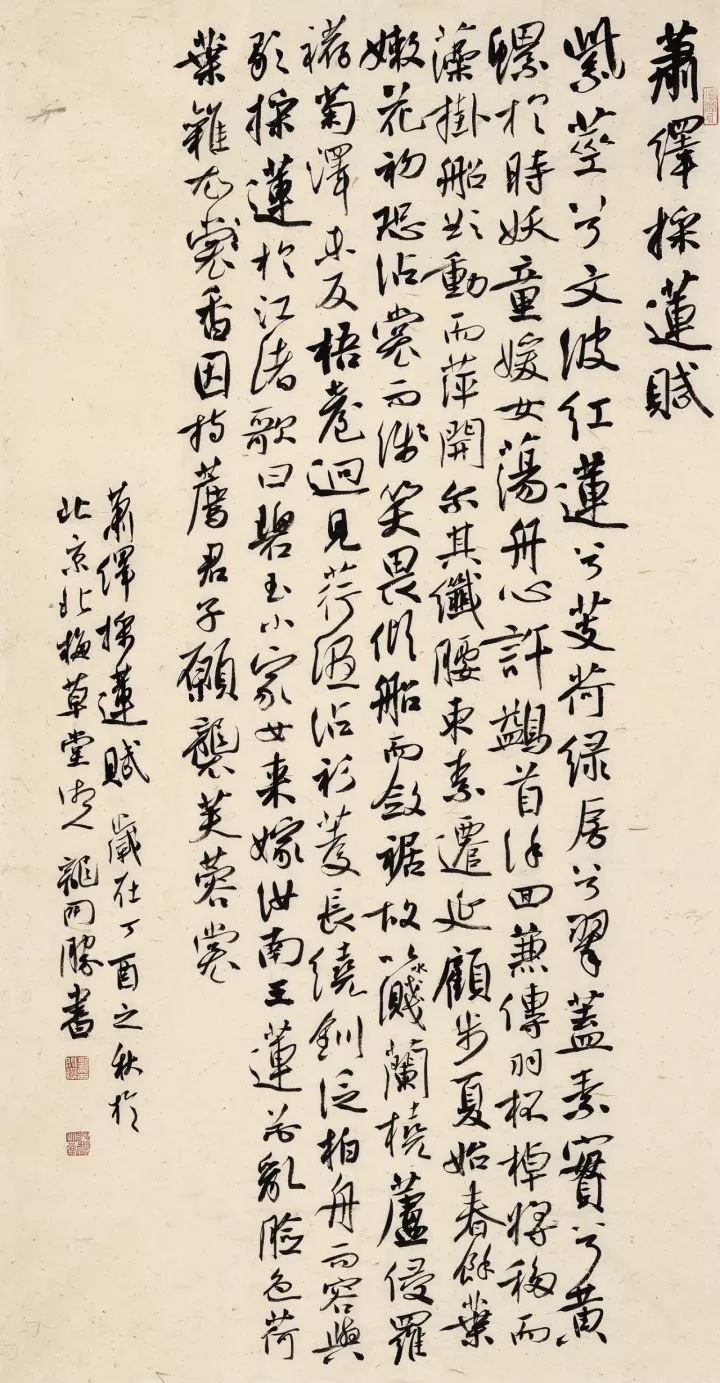 蕭繹採蓮賦
紫莖兮文波紅蓮兮芰荷綠房兮翠蓋素實兮黃
螺於時妖童媛女蕩舟心許鷁首徐回兼傳羽杯棹將移而
藻掛船欲動而萍開尔其纖腰束素遷延顧步夏始春餘葉
嫩花初恐沾裳而淺笑畏傾船而斂裾故以水濺蘭橈蘆侵羅
菊澤未反梧臺迥見荇濕沾衫菱長繞釧泛柏舟而容與
歌採蓮於江渚歌曰碧玉小家女來嫁汝南王蓮花亂臉色荷
葉雜衣裳香因持薦君子願襲芙蓉裳
蕭繹採蓮賦 歲在丁酉之秋於
北京北梅草堂 龍開勝書